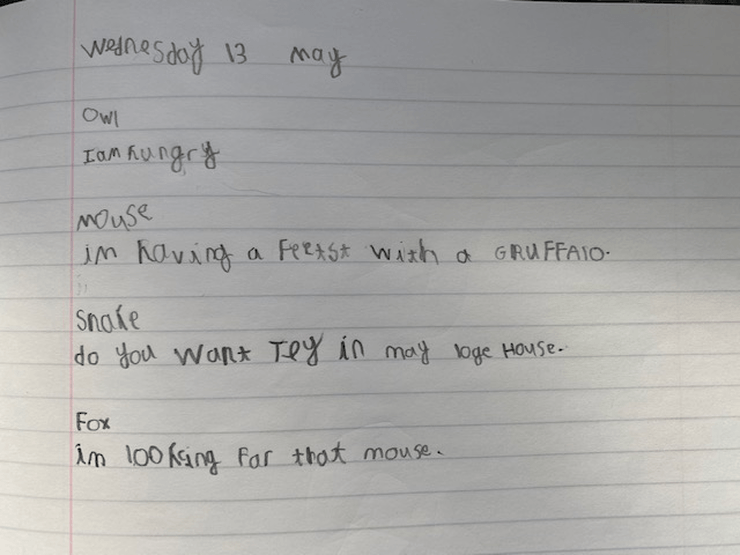 Wednesday 13 may
Owl
I am hungry
mouse
im having a feetst with a GRUFFAlO.
Snake
do you want Tey in may loge House.
Fox
im looking far that mouse.